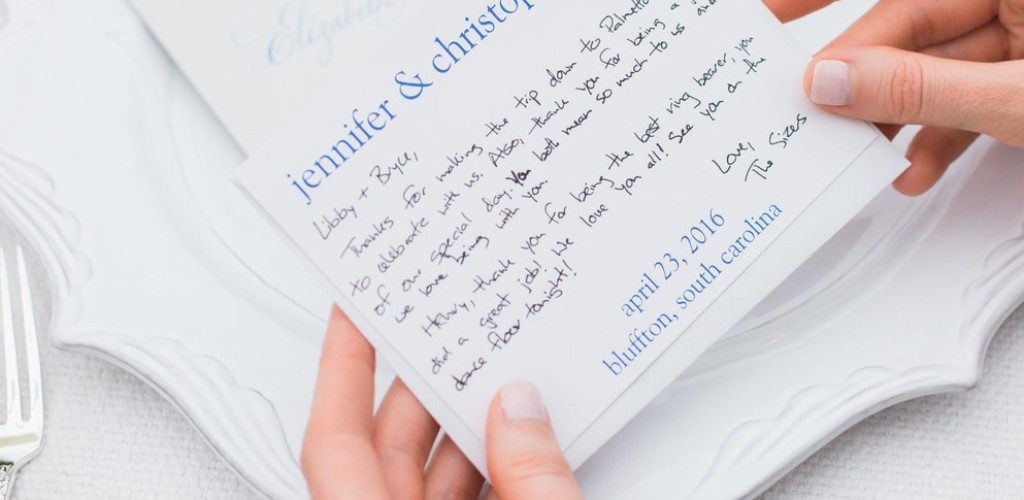 Elizabeth
jennifer & christop
Libby + Bryce,
Thanks for making the trip down to Palmetto
to celebrate with us. Also, thank you for being a
of our special day. You both mean so much to us and
we love being with you.
Henry, thank you for being the best ring bearer, you
did a great job! We love you all! See you on the
dance floor tonight!
Love,
The Sizers
april 23, 2016
bluffton, south carolina